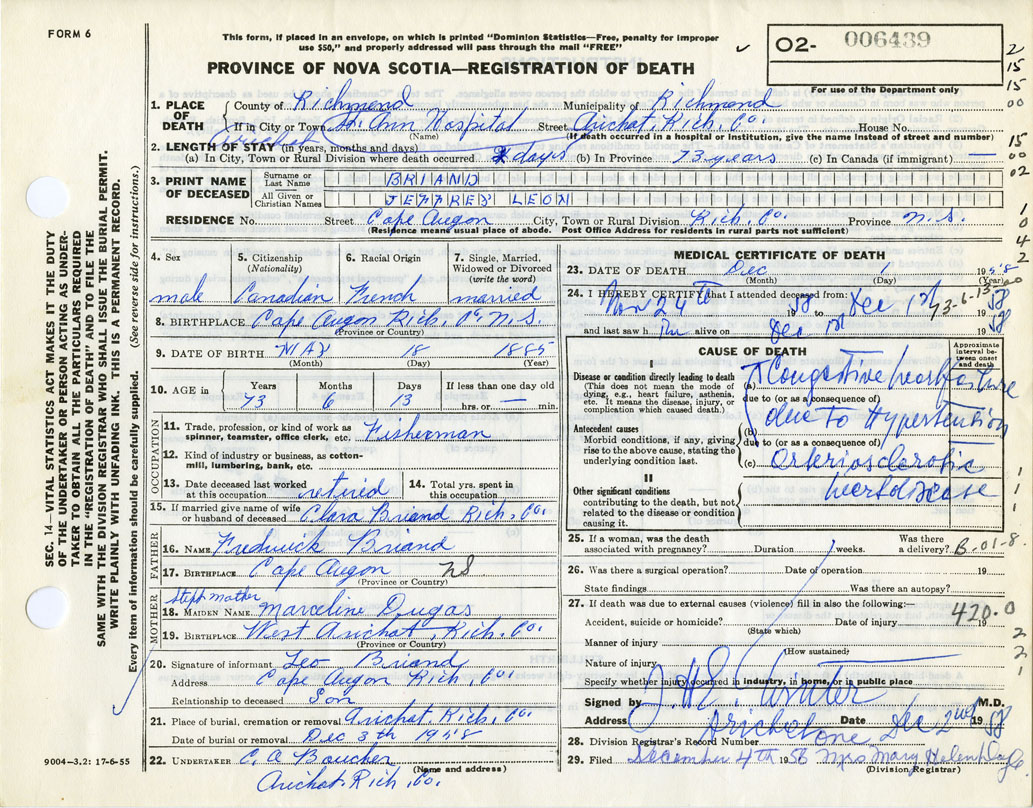 FORM 6
This form, if placed in an envelope, on which is printed "Dominion Statistics—Free, penalty for improper
use $50," and properly addressed will pass through the mail "FREE"
O2- 006439
For use of the Department only
PROVINCE OF NOVA SCOTIA—REGISTRATION OF DEATH
1. PLACE OF DEATH
County of Richmond Municipality of Richmond
If in City or Town St. Ann Hospital Street Arichat, Rich. Co. House No.
(Name) (If death occurred in a hospital or institution, give the name instead of street and number)
2. LENGTH OF STAY (in years, months and days)
(a) In City, Town or Rural Division where death occurred days (b) In Province 73 years (c) In Canada (if immigrant) —
3. PRINT NAME OF DECEASED
Surname or Last Name BRIAND
All Given or Christian Names JEFFREY LEON
RESIDENCE No. Street Cape Augon City, Town or Rural Division Rich. Co. Province N.S.
(Residence means usual place of abode. Post Office Address for residents in rural parts not sufficient)
4. Sex
male
5. Citizenship (Nationality)
Canadian
6. Racial Origin
French
7. Single, Married, Widowed or Divorced (write the word)
married
8. BIRTHPLACE Cape Augon Rich. Co. N.S.
(Province or Country)
9. DATE OF BIRTH MAY 18 1885
(Month) (Day) (Year)
10. AGE in Years Months Days If less than one day old
73 6 13 hrs. or — min.
OCCUPATION
11. Trade, profession, or kind of work as spinner, teamster, office clerk, etc. Fisherman
12. Kind of industry or business, as cotton-mill, lumbering, bank, etc.
13. Date deceased last worked at this occupation retired
14. Total yrs. spent in this occupation
15. If married give name of wife or husband of deceased Clara Briand Rich. Co.
FATHER
16. NAME Fredwick Briand
17. BIRTHPLACE Cape Augon NS
(Province or Country)
MOTHER
Steph mother
18. MAIDEN NAME Marceline Dugas
19. BIRTHPLACE West Arichat, Rich. Co.
(Province or Country)
20. Signature of informant Leo Briand
Address Cape Augon Rich. Co.
Relationship to deceased Son
21. Place of burial, cremation or removal Arichat, Rich. Co.
Date of burial or removal Dec 3th 1958
22. UNDERTAKER C. A. Boucher
(Name and address)
Arichat. Rich. Co.
MEDICAL CERTIFICATE OF DEATH
23. DATE OF DEATH Dec 1 1958
(Month) (Day) (Year)
24. I HEREBY CERTIFY that I attended deceased from
Nov 24th 1958 to Dec 1st 1958
73-6-13
and last saw h alive on Dec 1st 1958
CAUSE OF DEATH
Approximate interval between onset and death
I
Disease or condition directly leading to death
(This does not mean the mode of dying, e.g., heart failure, asthenia, etc. It means the disease, injury, or complication which caused death.)
(a) Congestive heart failure
due to (or as a consequence of)
Antecedent causes
Morbid conditions, if any, giving rise to the above cause, stating the underlying condition last.
(b) due to Hypertention
due to (or as a consequence of)
(c) Arteriosclerotic
heart disease
II
Other significant conditions
contributing to the death, but not related to the disease or condition causing it.
25. If a woman, was the death associated with pregnancy? Duration weeks. Was there a delivery? B-01-8.
26. Was there a surgical operation? Date of operation 19
State findings Was there an autopsy?
27. If death was due to external causes (violence) fill in also the following:—
420.0
Accident, suicide or homicide? Date of injury 19
(State which)
Manner of injury
(How sustained)
Nature of injury
Specify whether injury occurred in industry, in home, or in public place
Signed by M.D.
Address Date Dec 2nd 1958
28. Division Registrar's Record Number one
29. Filed December 4th 1958 Mrs Mary Helen
(Division Registrar)
SEC. 14—VITAL STATISTICS ACT MAKES IT THE DUTY
OF THE UNDERTAKER OR PERSON ACTING AS UNDER-
TAKER TO OBTAIN ALL THE PARTICULARS REQUIRED
IN THE "REGISTRATION OF DEATH" AND TO FILE THE
SAME WITH THE DIVISION REGISTRAR WHO SHALL ISSUE THE BURIAL PERMIT.
WRITE PLAINLY WITH UNFADING INK. THIS IS A PERMANENT RECORD.
Every item of information should be carefully supplied. (See reverse side for instructions.)
9004-3.2: 17-6-55
2
15
15
00
15
00
02
1
0
4
2
1
1
1
2
2
1